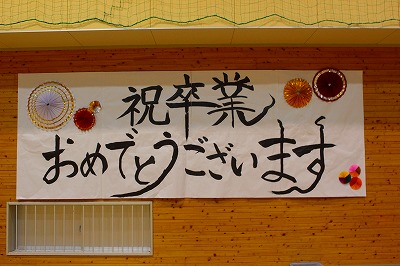 祝卒業
おめでとうございます